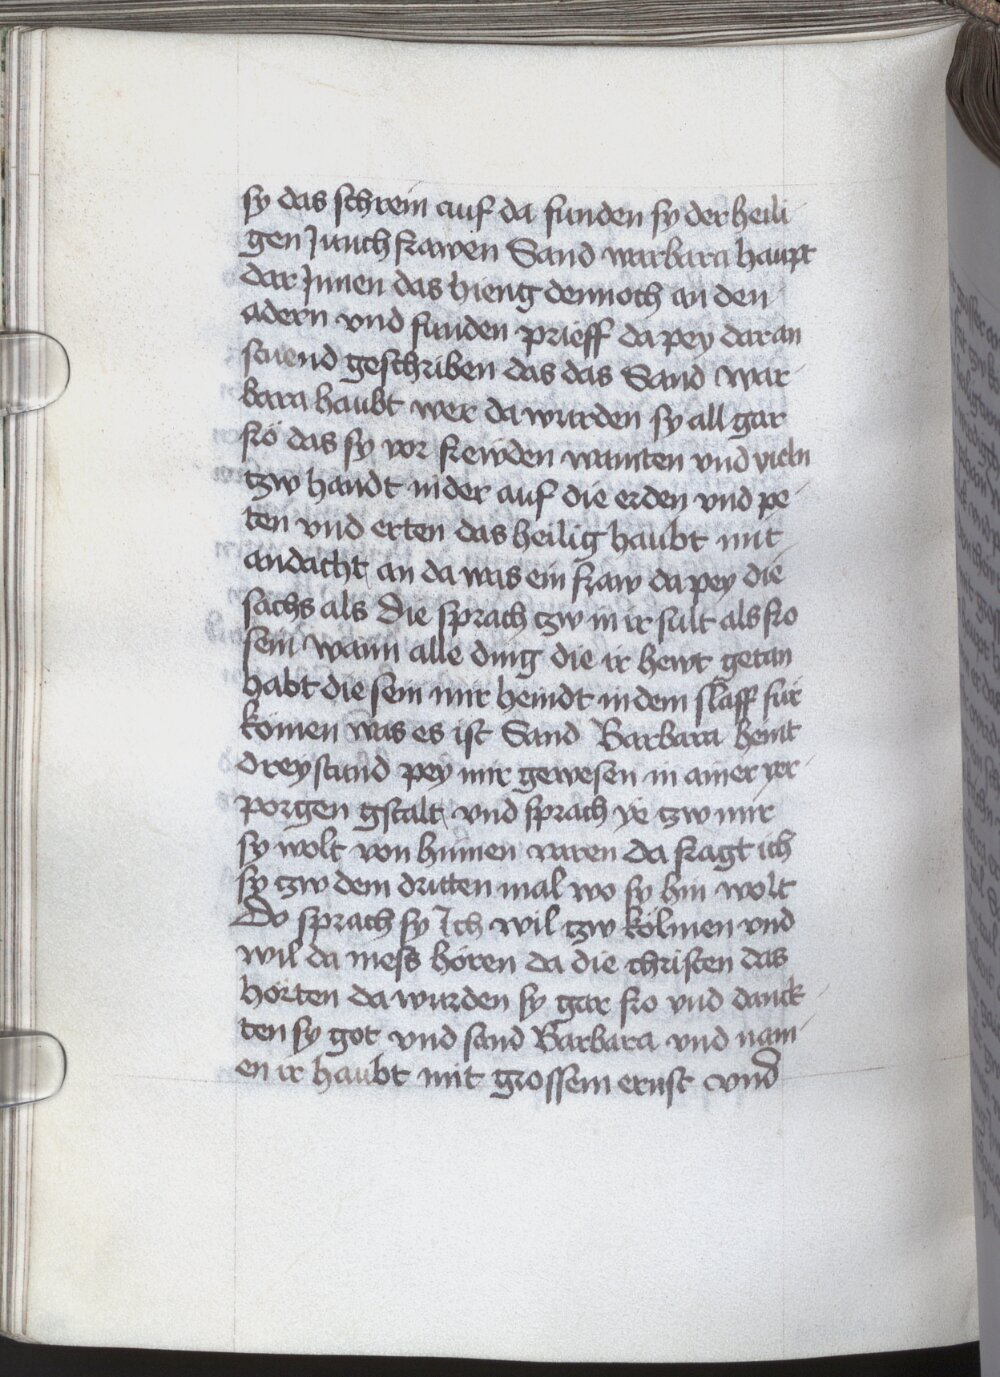 sy das schrein auf da funden sy der heili
gen Junchfrawen Sand warbara haupt
dar Jnnen das hieng dennoch an den
adern vnd funden prieff da pey daran
stuend geschriben das das Sand war
bara haubt wer da wurden sy all gar
fro das sy vor frewden wainten vnd vieln
tzw handt nider auf die erden vnd pe
ten vnd erten das heilig haubt mit
andacht an da was ein fraw da pey die
sachs als die sprach tzw in ir sult als fro
sein wann alle ding die ir hewt getan
habt die sein mir heindt in dem slaff für
komen was es ist Sand Barbara heint
dreystund pey mir gewesen in ainer ver
porgen gstalt vnd sprach ye tzw mir
sy wolt von hinnen varen da fragt ich
sy tzw dem dritten mal wo sy hin wolt
Do sprach sy Ich wil tzw kölmen vnd
wil da mess hören da die christen das
horten da wurden sy gar fro vnd danck
ten sy got vnd sand Barbara vnd nam
en ir haubt mit grossem ernst vnd